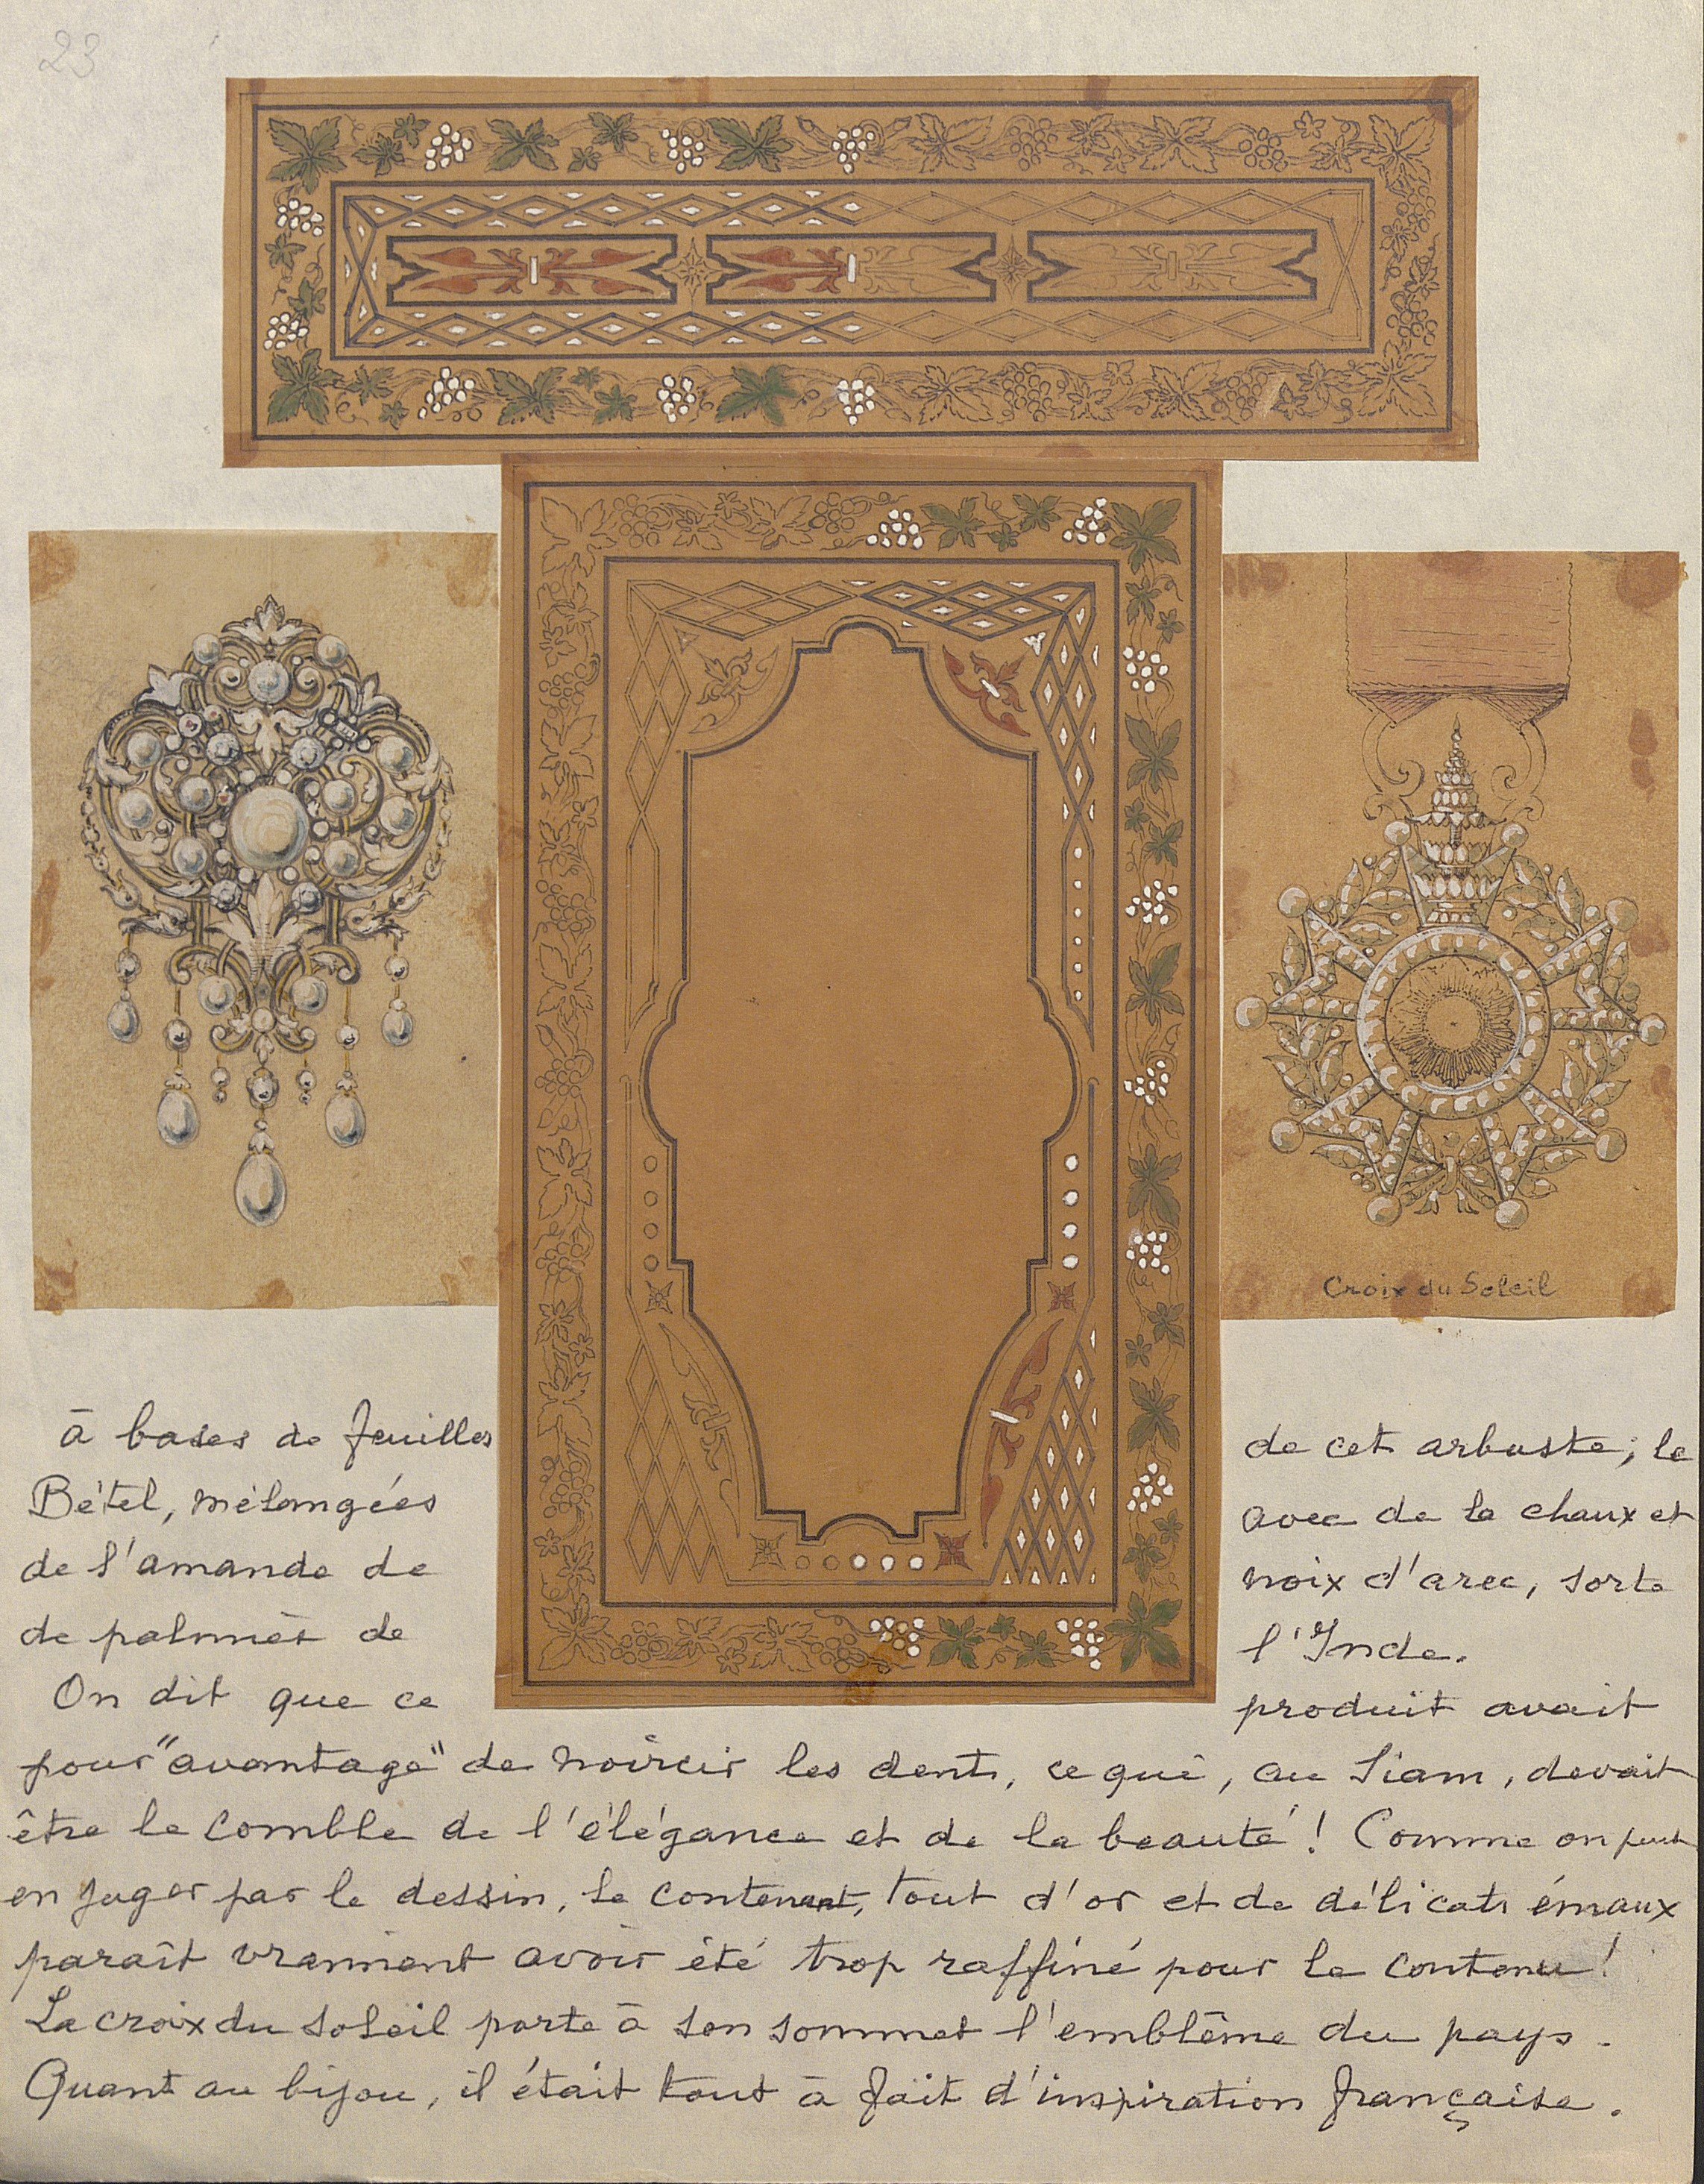 23
Croix du Soleil
à bases de feuilles de cet arbuste; le
Bétel, mélangées avec de la chaux et
de l'amande de noix d'arec, sorte
de palmier de l'Inde.
On dit que ce produit avait
pour "avantage" de noircir les dents, ce qui, au Siam, devait
être le comble de l'élégance et de la beauté! Comme on peut
en juger par le dessin, le contenant, tout d'or et de délicats émaux
paraît vraiment avoir été trop raffiné pour le contenu!
La croix du soleil porte à son sommet l'emblême du pays.
Quant au bijou, il était tout à fait d'inspiration française.